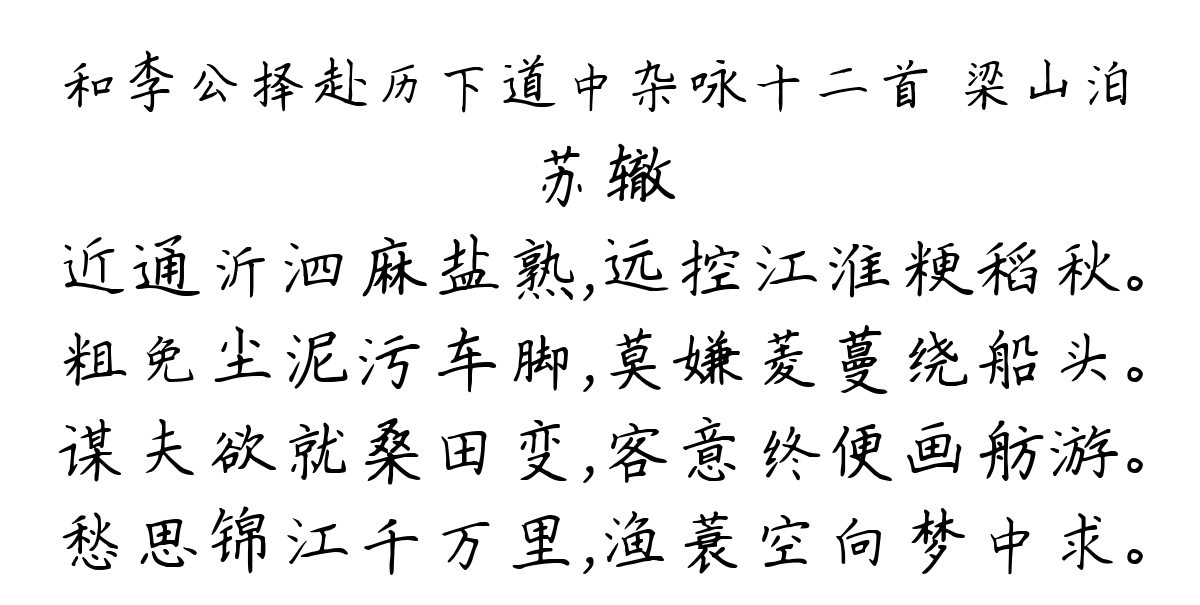 和李公择赴历下道中杂咏十二首 梁山泊
苏辙
近通沂泗麻盐熟,远控江淮粳稻秋。
粗免尘泥污车脚,莫嫌菱蔓绕船头。
谋夫欲就桑田变,客意终便画舫游。
愁思锦江千万里,渔蓑空向梦中求。